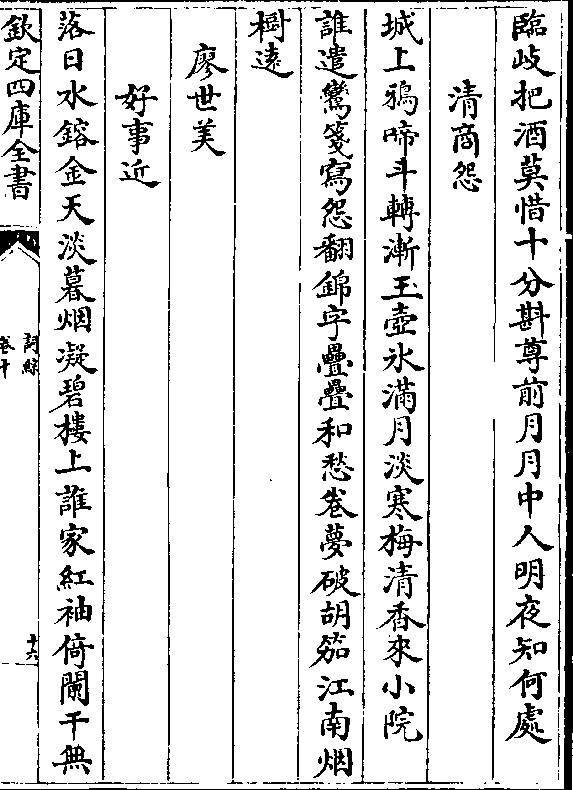 臨岐把酒莫惜十分斟尊前月月中人明夜知何處
清商怨
城上鴉啼斗轉漸玉壺氷滿月淡寒梅清香來小院
誰遣鸞箋寫怨翻錦字疊疊和愁卷夢破胡笳江南烟
樹遠
廖世美
好事近
落日水鎔金天淡暮烟凝碧樓上誰家紅袖倚闌干無
欽定四庫全書
詞綜
卷十
十六